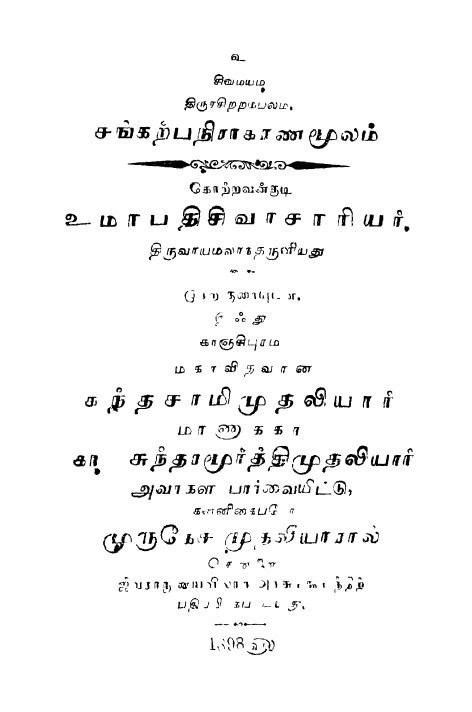 உ
சிவமயம்
திருச்சிற்றம்பலம்.
சங்கற்பநிராகரணமூலம்
கொற்றவன்குடி
உமாபதிசிவாசாரியர்,
திருவாய்மலர்ந்தருளியது
இஃது
காஞ்சிபுரம்
மகாவித்வான்
கந்தசாமிமுதலியார்
மாணாக்கர்
கா. சுந்தரமூர்த்திமுதலியார்
அவர்கள் பார்வையிட்டு,
முருகேச முதலியாரால்
சென்னை
பதிப்பிக்கப்பட்டது.
1898 ௵